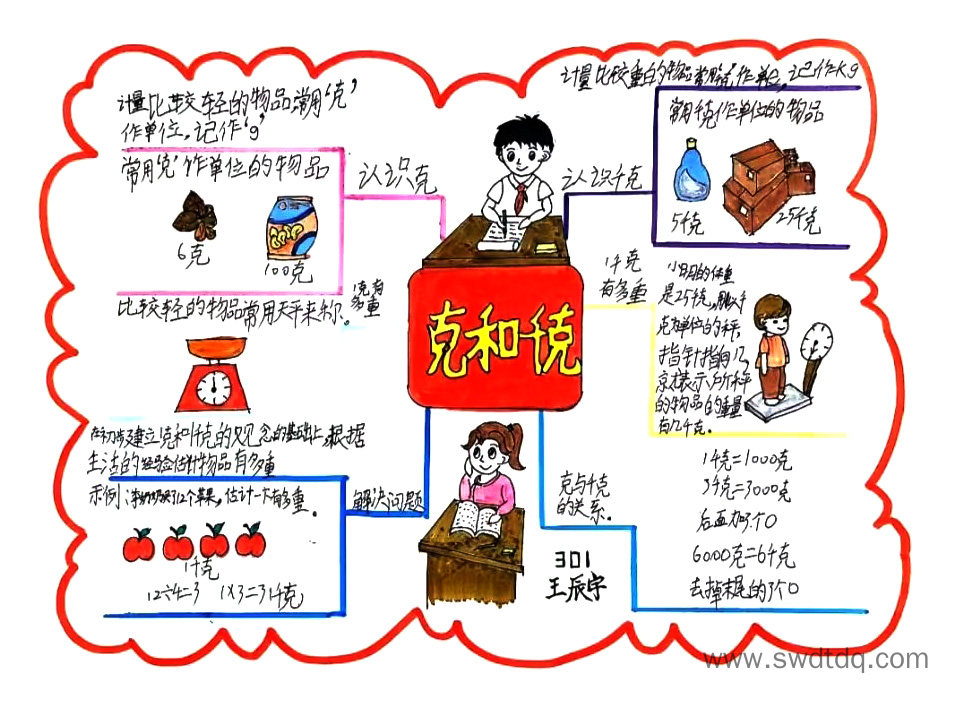 计量比较轻的物品常用"克"
作单位，记作"g"
常用"克"作单位的物品
6克
100克
认识克
1克有
多重
比较轻的物品常用天平来称。
计量比较重的物品常用"千克"作单位，记作Kg
常用千克作单位的物品
5千克
25千克
认识千克
1千克
有多重
小明的体重
是25千克，
克为单位的秤，
指针指向几，
就表示所称
的物品的重量
有几千克。
克和千克
在初步建立克和千克的观念的基础上，根据
生活的经验估计物品有多重
示例：李奶奶买了12个苹果，估计一下有多重。
1千克
12÷4=3 1×3=3千克
解决问题
克与千克
的关系。
1千克=1000克
3千克=3000克
后面加3个0
6000克=6千克
去掉末尾的3个0
301
王辰宇
www.swdtdq.com